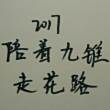 2017
陪着九锥
走花路